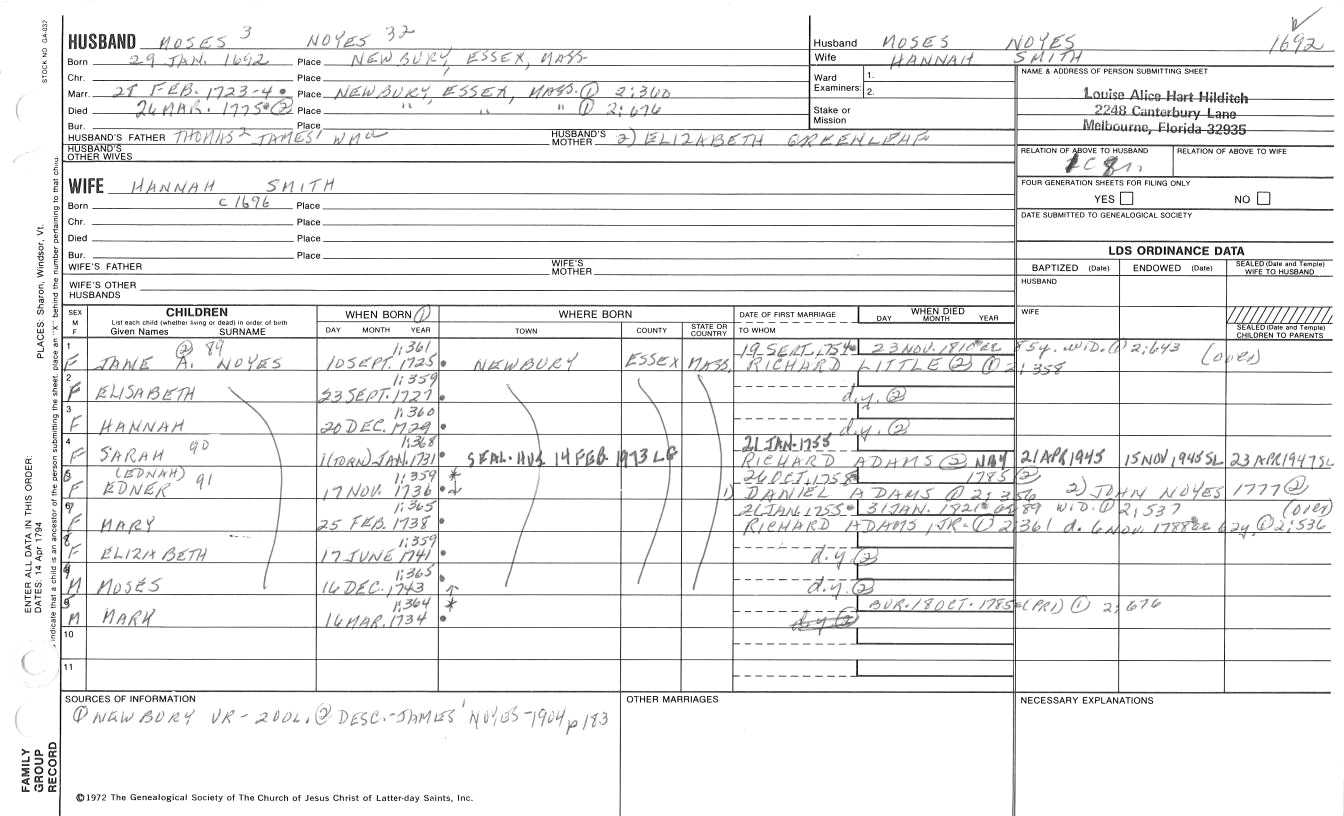 STOCK NO. GA-037
HUSBAND MOSES 3 NOYES 32
Born 29 JAN. 1692 Place NEWBURY, ESSEX, MASS.
Chr. Place
Marr. 28 FEB. 1723-4 Place NEWBURY, ESSEX, MASS. ① 2;360
Died 26 MAR. 1775 ② Place " " ① 2;676
Bur. Place
HUSBAND'S FATHER THOMAS 2 JAMES 1 WM a
HUSBAND'S MOTHER 2) ELIZABETH GREENLEAF
HUSBAND'S OTHER WIVES
Husband MOSES NOYES 1692
Wife HANNAH SMITH
Ward Examiners: 1.
2.
Stake or Mission
NAME & ADDRESS OF PERSON SUBMITTING SHEET
Louise Alice Hart Hilditch
2248 Canterbury Lane
Melbourne, Florida 32935
RELATION OF ABOVE TO HUSBAND RELATION OF ABOVE TO WIFE
1C 8r.
FOUR GENERATION SHEETS FOR FILING ONLY
YES NO
DATE SUBMITTED TO GENEALOGICAL SOCIETY
WIFE HANNAH SMITH
Born c 1696 Place
Chr. Place
Died Place
Bur. Place
WIFE'S FATHER WIFE'S MOTHER
WIFE'S OTHER HUSBANDS
LDS ORDINANCE DATA
BAPTIZED (Date) ENDOWED (Date) SEALED (Date and Temple) WIFE TO HUSBAND
HUSBAND
WIFE
SEALED (Date and Temple) CHILDREN TO PARENTS
SEX M F
CHILDREN
List each child (whether living or dead) in order of birth
Given Names SURNAME
WHEN BORN ①
DAY MONTH YEAR
WHERE BORN
TOWN COUNTY STATE OR COUNTRY
DATE OF FIRST MARRIAGE
TO WHOM
WHEN DIED
DAY MONTH YEAR
1 ② 89 1;361 19 SEPT. 1754 23 NOV. 1810 85y. WID. ① 2;643 (over)
F JANE A. NOYES 10 SEPT. 1725 NEWBURY ESSEX MASS. RICHARD LITTLE ② ① 2;358
2 1;359
F ELISABETH 23 SEPT. 1727 d.y. ②
3 1;360
F HANNAH 20 DEC. 1729 d.y. ②
4 90 1;368 21 JAN. 1755
F SARAH 1(TORN) JAN. 1731 SEAL. HUS 14 FEB 1973 LG RICHARD ADAMS ② 21 APR 1945 15 NOV, 1945 SL 23 APR 1947 SL
(EDNAH) 91 1;359 * 26 OCT. 1758 1785 ②
F EDNER 17 NOV. 1736 1) DANIEL ADAMS ① 2;356 2) JOHN NOYES 1777 ②
1;365 21 JAN. 1755 31 JAN. 1821 89 WID. ① 2;537 (over)
F MARY 25 FEB. 1738 RICHARD ADAMS, JR. ① 2;361 d. 6 NOV. 1788 62y. ① 2;536
1;359
F ELIZABETH 17 JUNE 1741 d.y ②
1;365
M MOSES 16 DEC. 1743 d.y. ②
1;364 * BUR. 18 OCT. 1785 (PR1) ① 2;676
M MARK 16 MAR. 1734 d.y ②
10
11
SOURCES OF INFORMATION
① NEWBURY VR - 200L. ② DESC.-JAMES' NOYES-1904 p 183
OTHER MARRIAGES
NECESSARY EXPLANATIONS
©1972 The Genealogical Society of The Church of Jesus Christ of Latter-day Saints, Inc.
FAMILY GROUP RECORD
ENTER ALL DATA IN THIS ORDER:
DATES: 14 Apr 1794
PLACES: Sharon, Windsor, Vt.
indicate that a child is an ancestor of the person submitting the sheet, place an "X" behind the number pertaining to that child.